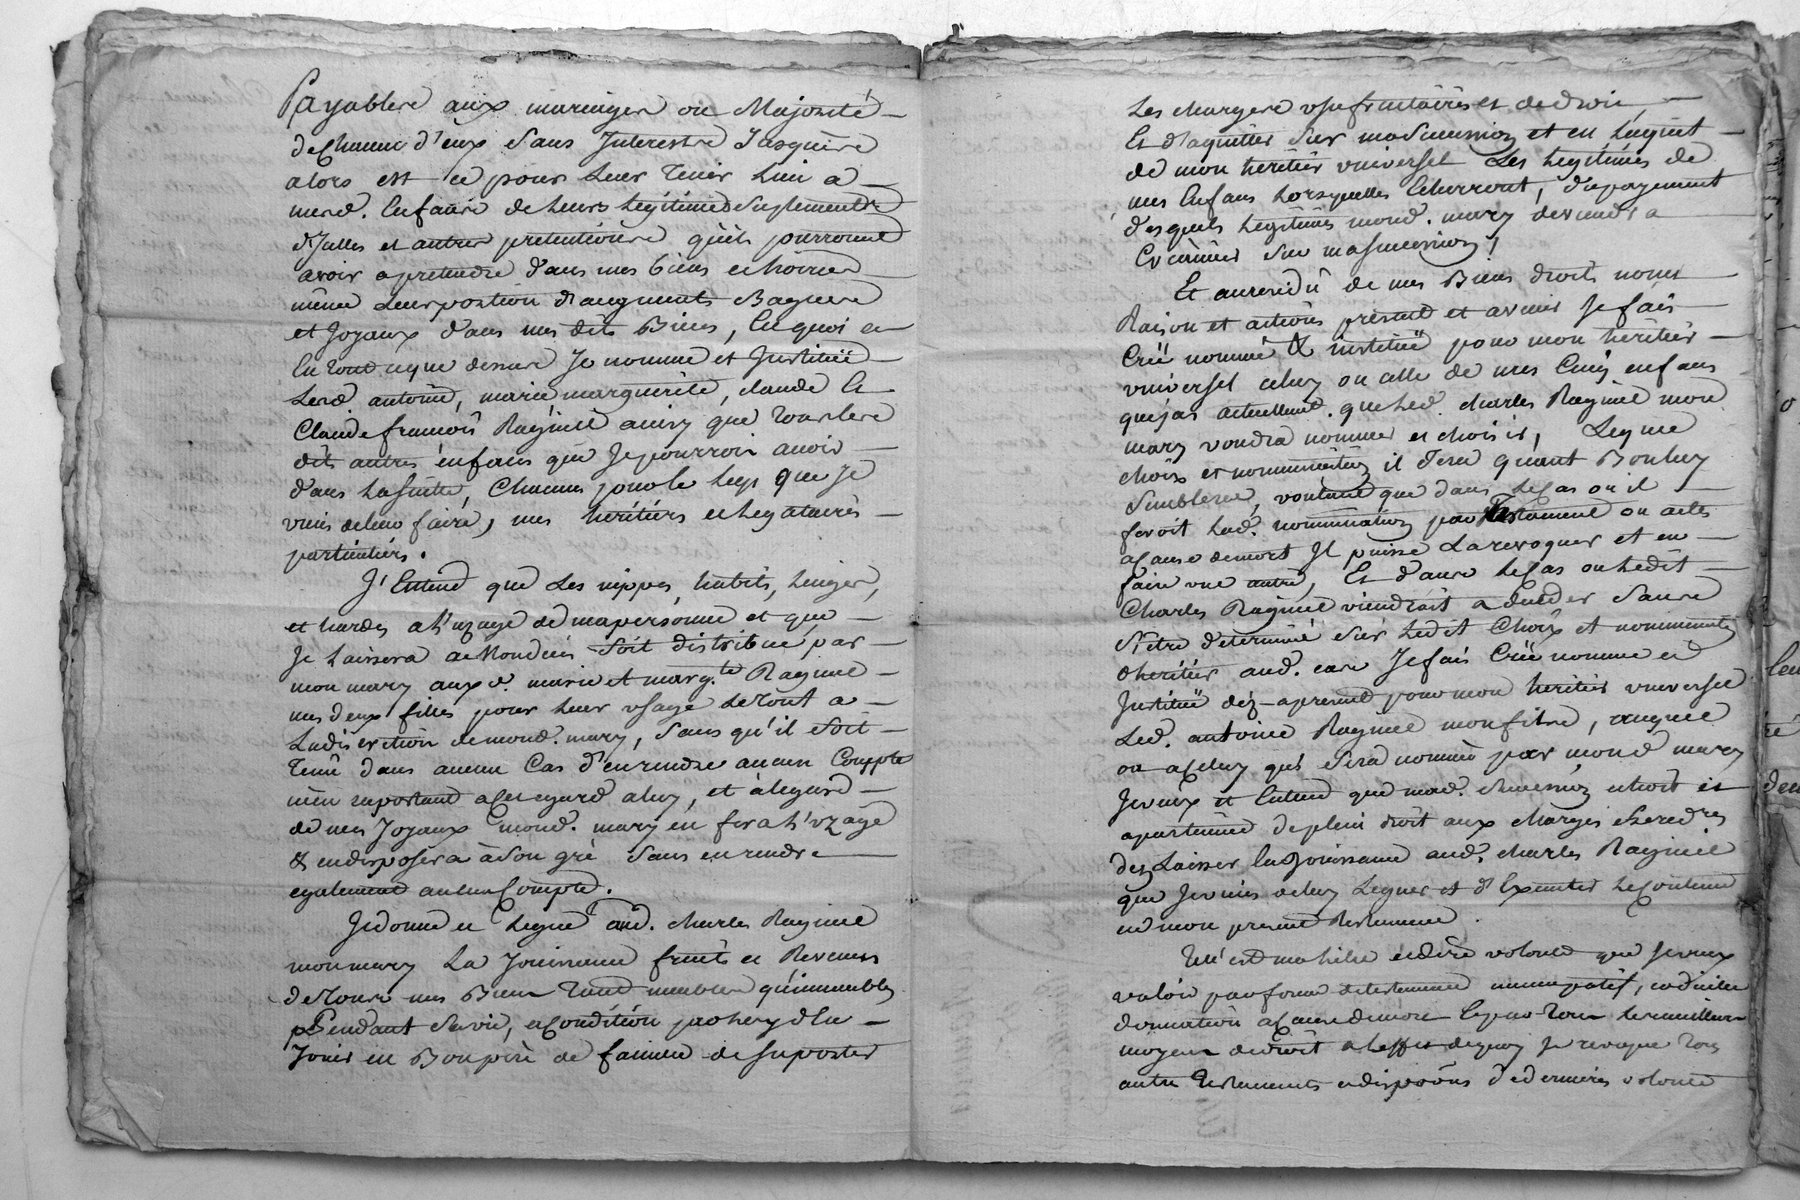 Payablere aux mariages ou Majorité
de Chacun d'eux Sans Interestre Jusquire
alors est ce pour Leur Tenir Lieu a
mesd. Enfans de Leurs Legitimes Suplement
d'Jcelles et autres pretentions qu'ils pourront
avoir a pretendre dans mes biens et hoirie
même Leur portion d'augments Bagues
et Joyaux dans mes dits Biens, En quoi et
En tout ce que dessus Je nomme et Justituë
Lesd. antoine, marie marguerite, claude Et
Claude francois Raginel ainsy que tous Les
dits autres enfans que Je pourrois avoir
dans La suitte, Chacuns pour le legs que Je
viens de leur faire, mes heritiers et legataires
particuliers.
J'Entend que Les nippes, habits, Linges,
et hardes a L'uzage de ma personne et que
Je Laissera au Monde soit distribué par
mon mary aux d. marie et marg.te Raginel
mes deux filles pour Leur usage Le tout a
La discretion de mond. mary, Sans qu'il Soit
Tenû dans aucun Cas d'en rendre aucun Compte
m'en raportant a cet egard a luy, et a legard
de mes Joyaux mond. mary en fera L'uzage
& en disposera à Son gré Sans en rendre
egalement aucun Compte.
Je donne et Legue aud. charles Raginel
mon mary La Jouissance fruits et Revenus
de Tous mes Biens Tant meubles qu'immeubles
Pendant Sa vie, a Condition par luy d'en
Jouir en Bon pere de famille de Suporter
Les charges usufruitaires et de droit,
Et d'aquitter Sur ma Succession et en l'aquit
de mon heritier universel Les Legitimes de
mes Enfans Lorsquelles Echerront, du payement
desquels Legitimes mond. mary deviendra
Créancier Sur ma Succession,
Et au residû de mes Biens droits noms
Raison et actions présent et avenir Je fais
Créé nomme & institüe pour mon heritier
universel celuy ou celle de mes Cinq enfans
que j'ai actuellemt. que Led. charles Raginel mon
mary voudra nommer et choisir, Lequel
choix et nomination il fera quant Bon luy
Semblera, voulant que dans le Cas ou il
feroit Lad. nomination par Testament ou actes
a cause de mort Jl puisse La revoquer et en
faire une autre, Et dans le Cas ou Ledit
Charles Raginel viendroit a deceder Sans
S'etre determiné Sur Ledit Choix et nomination
d'heritier aud. cas Je fais Créé nomme et
Justituë dez a present pour mon heritier universel
Led. antoine Raginel mon fils, auquel
ou a celuy qui Sera nommé par mond mary
Je veux et Entend que mad. Succession echoit et
apartienne de plein droit aux charges
de Laisser la Jouissance aud. charles Raginel
que Je viens de luy Leguer et d'Executer le Contenu
en mon present testament.
Tel est ma Libre et derniere volonté que Je veux
valoir par forme de testament nuncupatif, codicille
donnation a cause de mort et par tous Les meilleurs
moyens de droit a L'effet de quoy Je revoque tous
autre testaments et dispoõns de derniere volonté